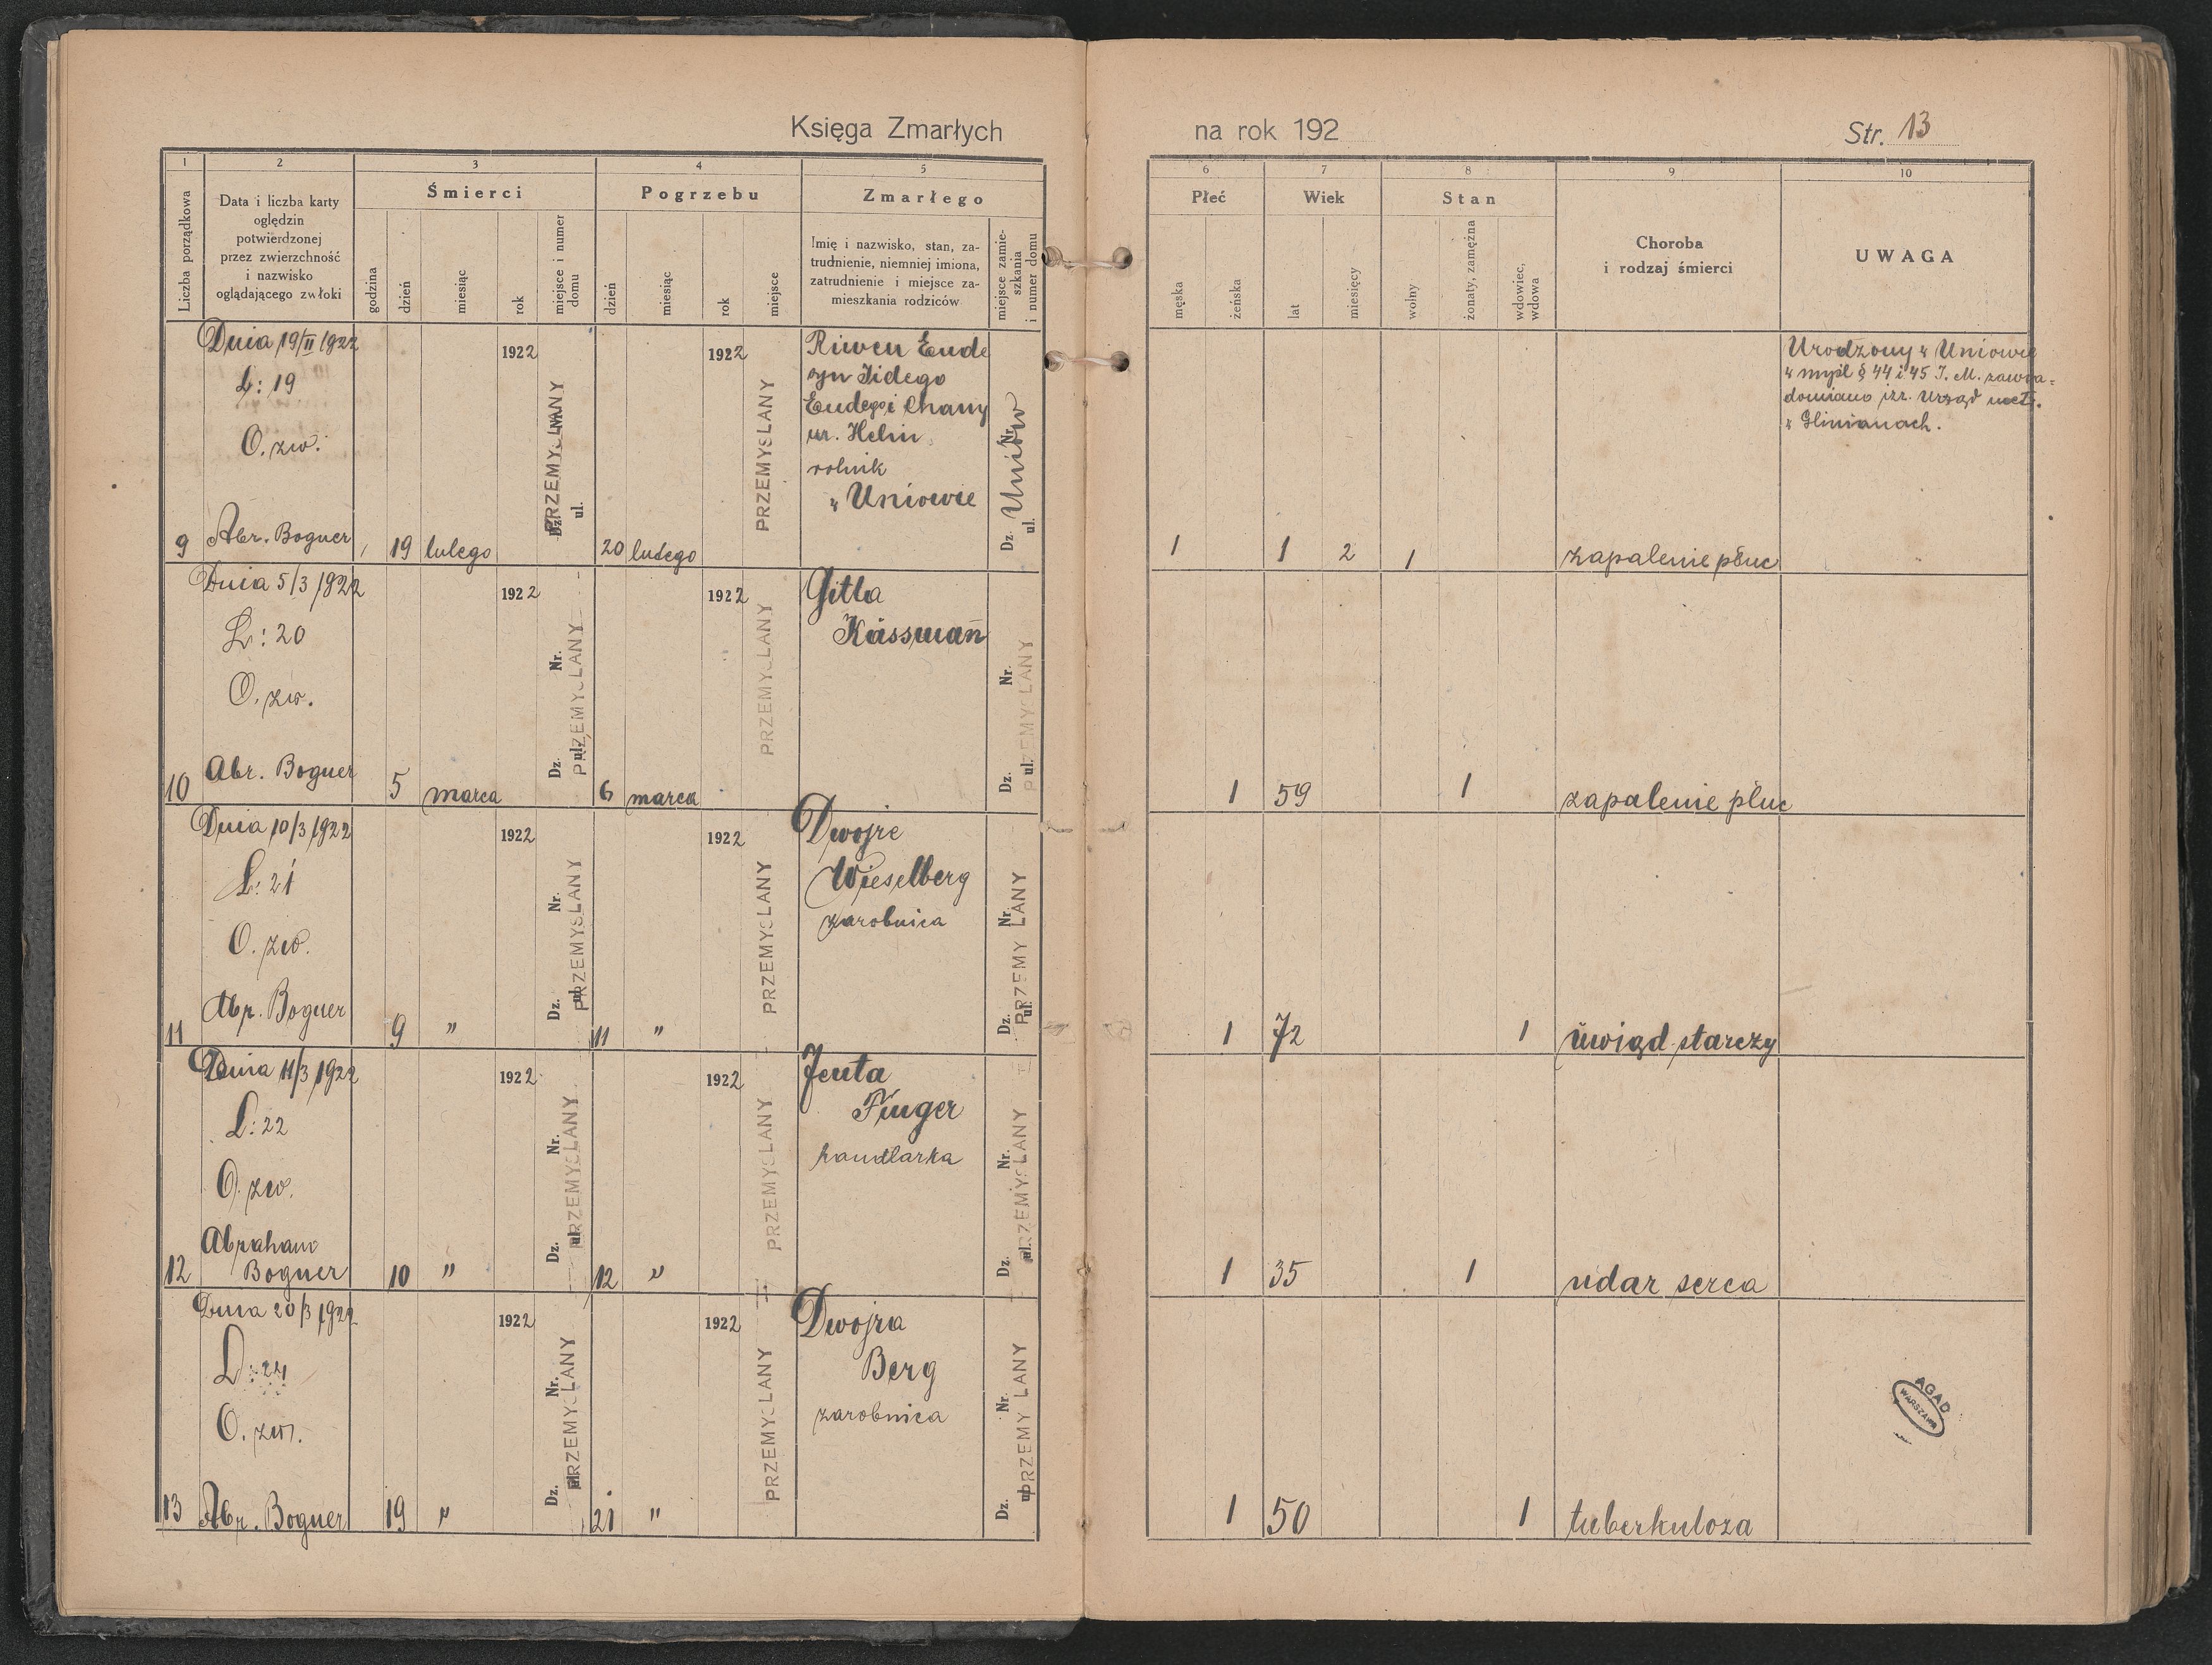 Księga Zmarłych
na rok 192
Str. 13
1
2
3
4
5
6
7
8
9
10
Liczba porządkowa
Data i liczba karty
oględzin
potwierdzonej
przez zwierzchność
i nazwisko
oglądającego zwłoki
Śmierci
godzina
dzień
miesiąc
rok
miejsce i numer
domu
Pogrzebu
dzień
miesiąc
rok
miejsce
Zmarłego
Imię i nazwisko, stan, za-
trudnienie, niemniej imiona,
zatrudnienie i miejsce za-
mieszkania rodziców
miejsce zamie-
szkania
i numer domu
Płeć
męska
żeńska
Wiek
lat
miesięcy
Stan
wolny
żonaty, zamężna
wdowiec,
wdowa
Choroba
i rodzaj śmierci
UWAGA
9
Dnia 19/II 1922
L: 19
O. zw.
Abr. Bogner
19 lutego 1922
PRZEMYSLANY
Dz. ul. Nr.
20 lutego 1922
PRZEMYSLANY
Riwen Eude
syn Jidego
Eudego i Chany
ur. Helin
rolnik
w Uniowie
Dz. ul. Nr.
Uniów
1
1 2
1
zapalenie płuc
Urodzony w Uniowie
w myśl § 44 i 45 J. M. zawia=
domiono izr. Urząd metr.
w Glinianach.
10
Dnia 5/3 1922
L: 20
O. zw.
Abr. Bogner
5 marca 1922
Dz. ul. Nr.
PRZEMYSLANY
6 marca 1922
PRZEMYSLANY
Gitla
Kässman
Dz. ul. Nr.
PRZEMYSLANY
1
59
1
zapalenie płuc
11
Dnia 10/3 1922
L: 21
O. zw.
Abr. Bogner
9 " 1922
Dz. ul. Nr.
PRZEMYSLANY
11 " 1922
PRZEMYSLANY
Dwojre
Wieselberg
zarobnica
Dz. ul. Nr.
PRZEMYSLANY
1
72
1
uwiąd starczy
12
Dnia 11/3 1922
L: 22
O. zw.
Abraham
Bogner
10 " 1922
Dz. ul. Nr.
PRZEMYSLANY
12 " 1922
PRZEMYSLANY
Jenta
Finger
handlarka
Dz. ul. Nr.
PRZEMYSLANY
1
35
1
udar serca
13
Dnia 20/3 1922
L: 24
O. zw.
Abr. Bogner
19 " 1922
Dz. ul. Nr.
PRZEMYSLANY
21 " 1922
PRZEMYSLANY
Dwojra
Berg
zarobnica
Dz. ul. Nr.
PRZEMYSLANY
1
50
1
tuberkuloza
AGAD
WARSZAWA